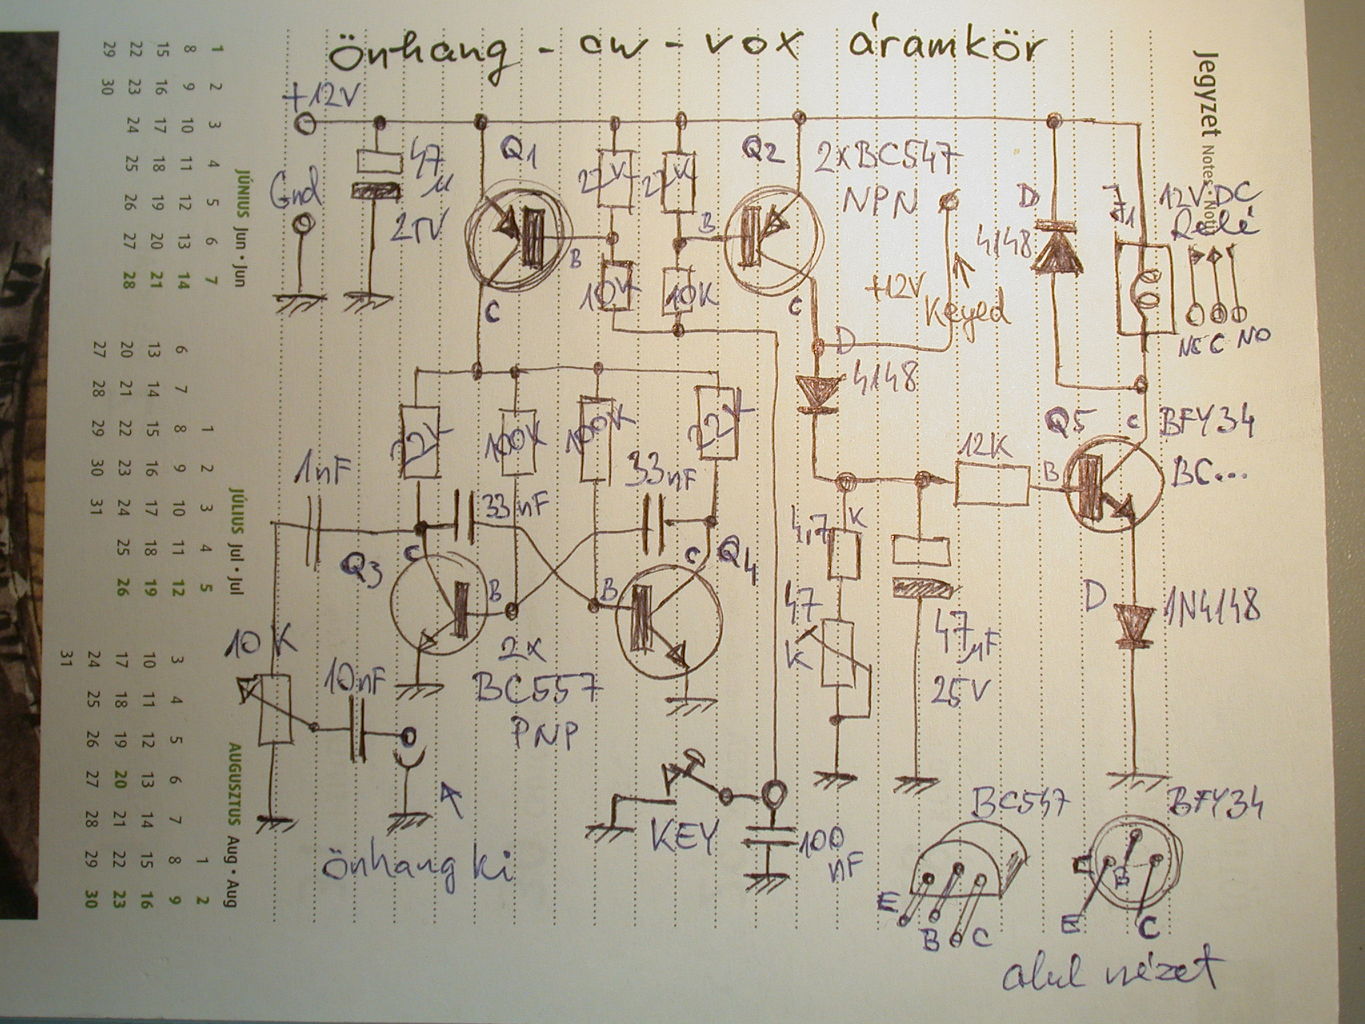 önhang - cw - vox áramkör
+12V
Gnd
47
µ
25V
Q1
B
C
27K
27K
10K
10K
Q2
B
C
2xBC547
NPN
+12V
Keyed
D
4148
D
4148
12V DC
Relé
J1
NC C NO
22K
100K
100K
22K
1nF
33nF
33nF
Q3
C
B
B
C
Q4
2x
BC557
PNP
10K
10nF
önhang ki
KEY
100
nF
4,7
K
47
K
47µF
25V
12K
B
Q5
C
BFY34
BC...
D
1N4148
BC547
E
B
C
BFY34
B
E
C
alul nézet
Jegyzet Notes
JÚNIUS Jun • Jun
1 8 15 22 29
2 9 16 23 30
3 10 17 24
4 11 18 25
5 12 19 26
6 13 20 27
7 14 21 28
JÚLIUS Jul • Jul
6 13 20 27
7 14 21 28
1 8 15 22 29
2 9 16 23 30
3 10 17 24 31
4 11 18 25
5 12 19 26
AUGUSZTUS Aug • Aug
3 10 17 24 31
4 11 18 25
5 12 19 26
6 13 20 27
7 14 21 28
1 8 15 22 29
2 9 16 23 30